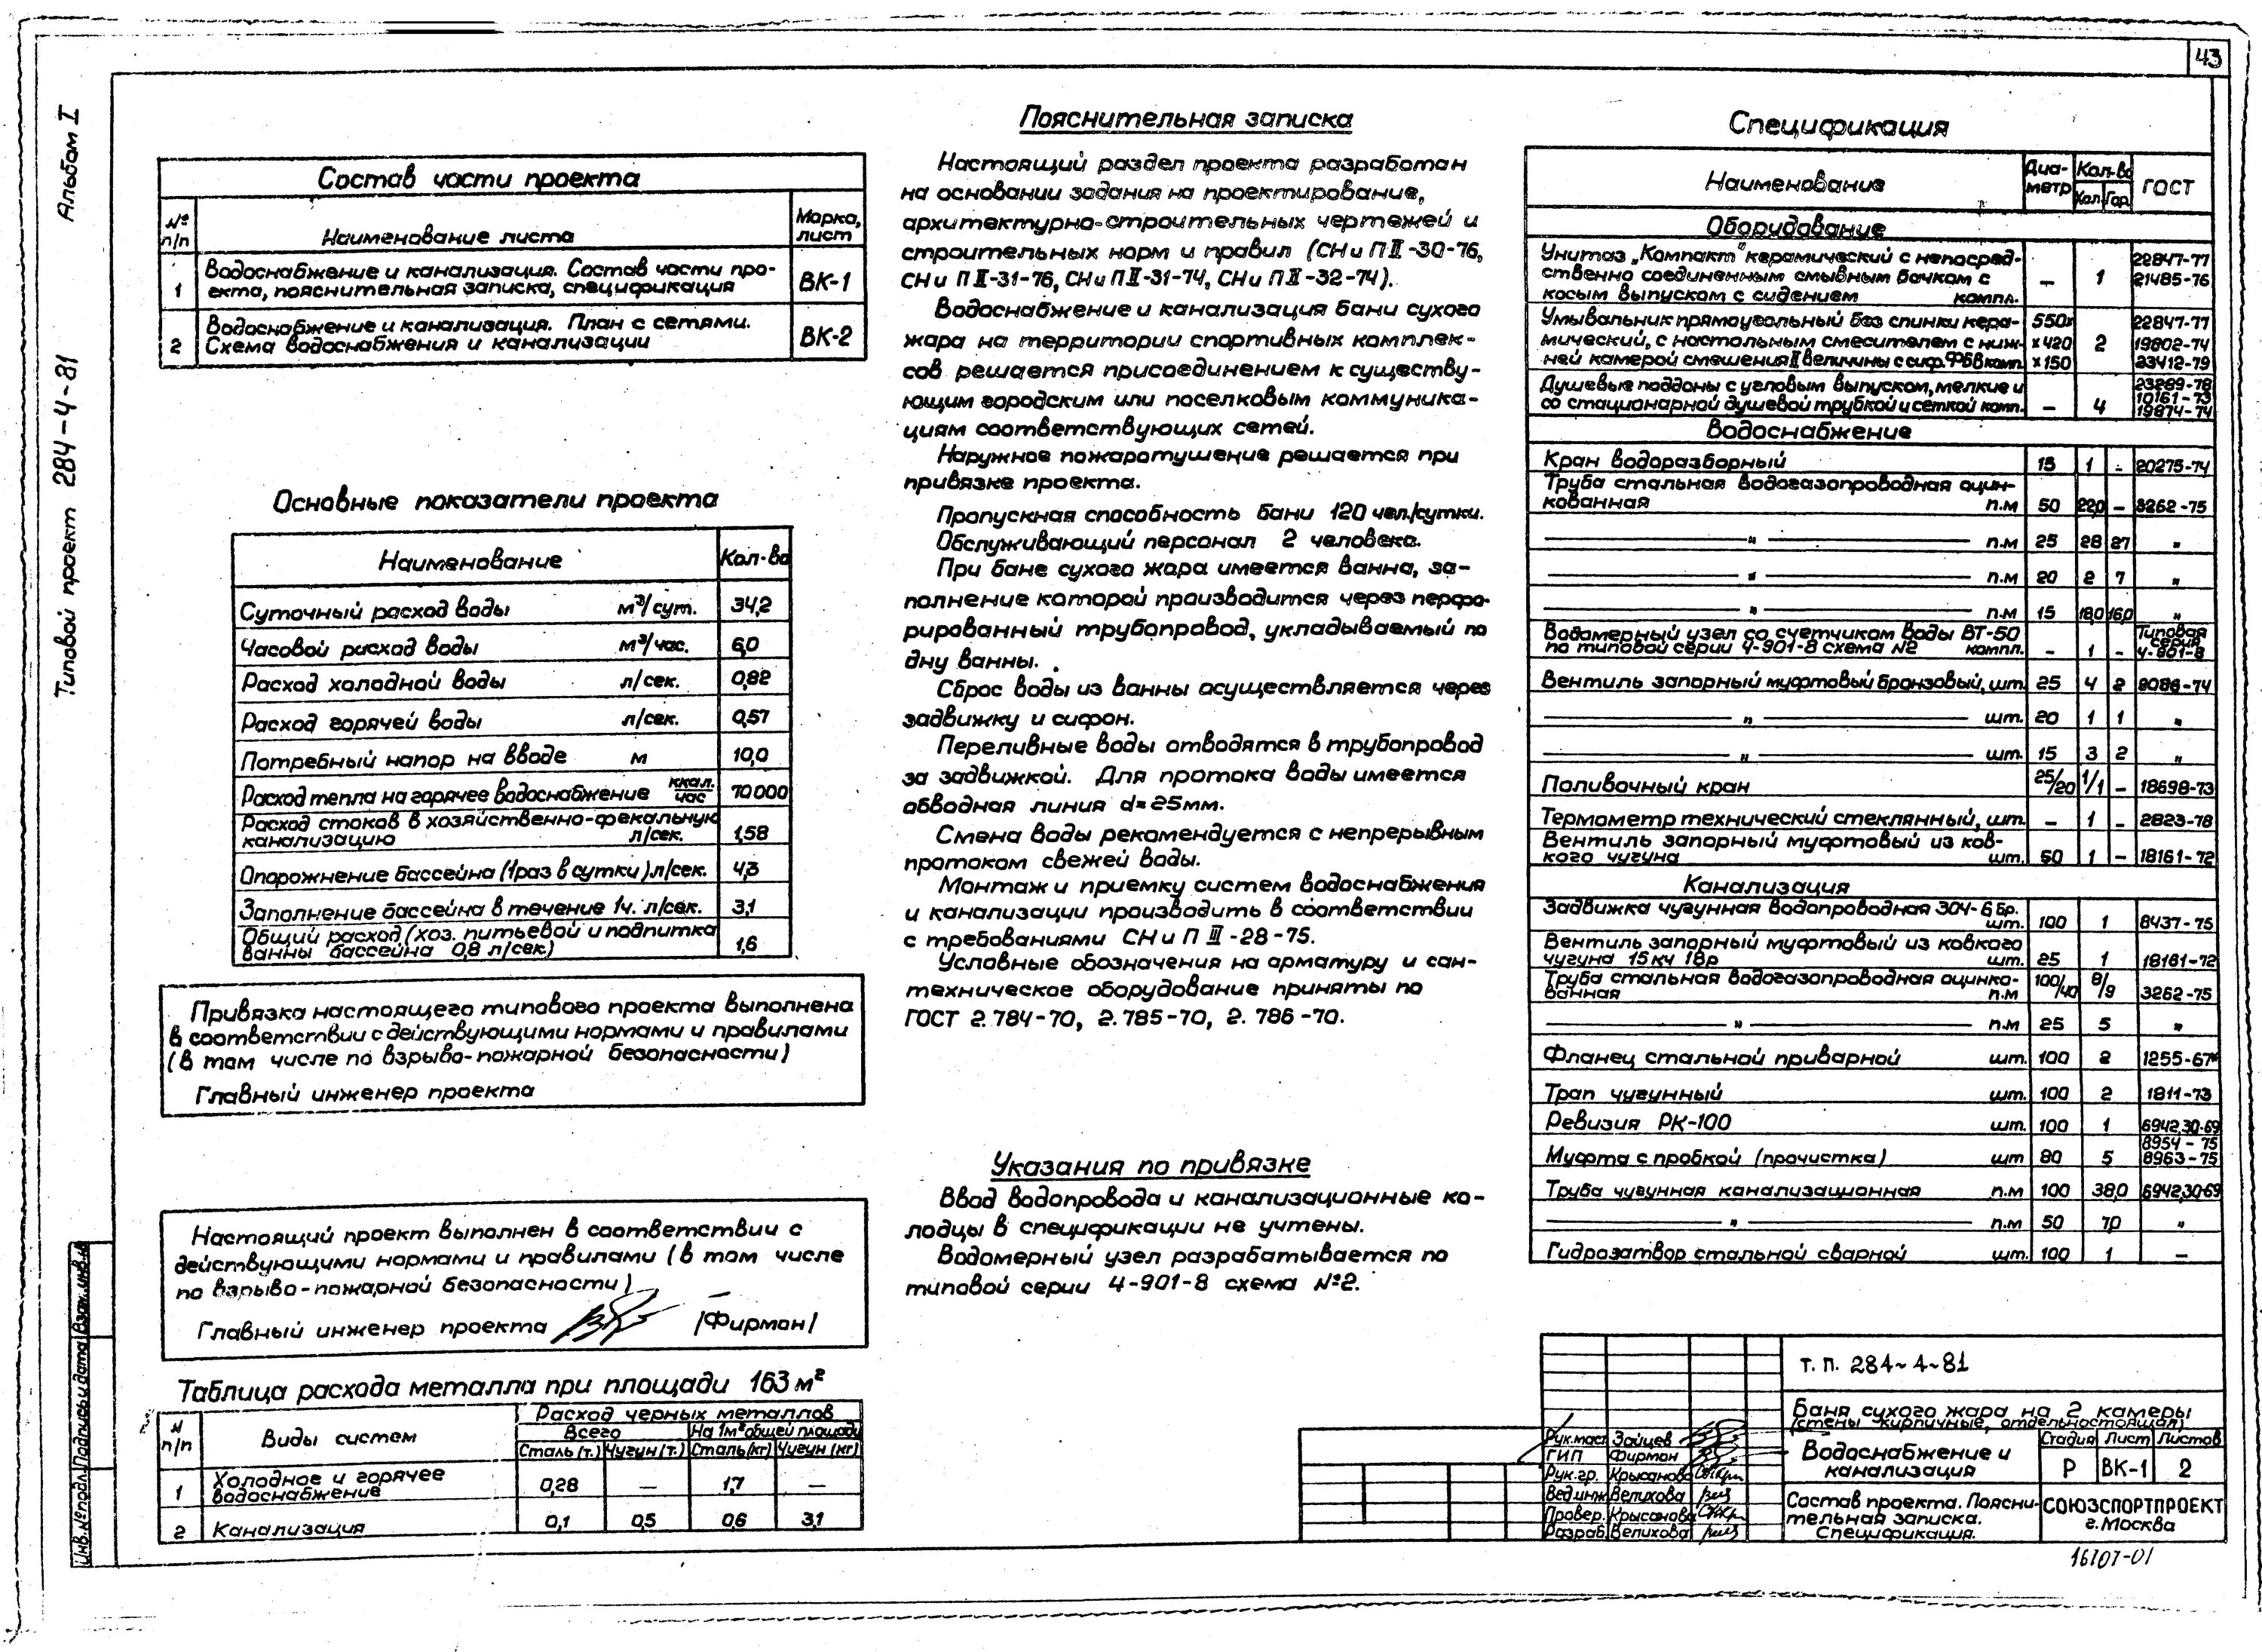 43
Альбом I
Типовой проект 284-4-81
Состав части проекта
№ п/п Наименование листа Марка, лист
1 Водоснабжение и канализация. Состав части про-
екта, пояснительная записка, спецификация ВК-1
2 Водоснабжение и канализация. План с сетями.
Схема водоснабжения и канализации ВК-2
Основные показатели проекта
Наименование Кол-во
Суточный расход воды м³/сут. 34,2
Часовой расход воды м³/час. 6,0
Расход холодной воды л/сек. 0,82
Расход горячей воды л/сек. 0,57
Потребный напор на вводе м 10,0
Расход тепла на горячее водоснабжение ккал./час 70000
Расход стоков в хозяйственно-фекальную
канализацию л/сек. 1,58
Опорожнение бассейна (1 раз в сутки) л/сек. 4,3
Заполнение бассейна в течение 1ч. л/сек. 3,1
Общий расход (хоз. питьевой и подпитка
ванны бассейна 0,8 л/сек) 1,6
Привязка настоящего типового проекта выполнена
в соответствии с действующими нормами и правилами
(в том числе по взрыво-пожарной безопасности)
Главный инженер проекта
Настоящий проект выполнен в соответствии с
действующими нормами и правилами (в том числе
по взрыво-пожарной безопасности)
Главный инженер проекта /Фирман/
Таблица расхода металла при площади 163 м²
N п/п Виды систем Расход черных металлов
Всего На 1м² общей площади
Сталь (т.) Чугун (т.) Сталь (кг) Чугун (кг)
1 Холодное и горячее
водоснабжение 0,28 — 1,7 —
2 Канализация 0,1 0,5 0,6 3,1
Пояснительная записка
Настоящий раздел проекта разработан
на основании задания на проектирование,
архитектурно-строительных чертежей и
строительных норм и правил (СН и П II-30-76,
СН и П II-31-76, СН и П II-31-74, СН и П II-32-74).
Водоснабжение и канализация бани сухого
жара на территории спортивных комплек-
сов решается присоединением к существу-
ющим городским или поселковым коммуника-
циям соответствующих сетей.
Наружное пожаротушение решается при
привязке проекта.
Пропускная способность бани 120 чел./сутки.
Обслуживающий персонал 2 человека.
При бане сухого жара имеется ванна, за-
полнение которой производится через перфо-
рированный трубопровод, укладываемый по
дну ванны.
Сброс воды из ванны осуществляется через
задвижку и сифон.
Переливные воды отводятся в трубопровод
за задвижкой. Для протока воды имеется
обводная линия d=25мм.
Смена воды рекомендуется с непрерывным
протоком свежей воды.
Монтаж и приемку систем водоснабжения
и канализации производить в соответствии
с требованиями СН и П III-28-75.
Условные обозначения на арматуру и сан-
техническое оборудование приняты по
ГОСТ 2.784-70, 2.785-70, 2.786-70.
Указания по привязке
Ввод водопровода и канализационные ко-
лодцы в спецификации не учтены.
Водомерный узел разрабатывается по
типовой серии 4-901-8 схема №2.
Спецификация
Наименование Диа-метр Кол-во Хол. Гор. ГОСТ
Оборудование
Унитаз „Компакт" керамический с непосред- 22847-77
ственно соединенным смывным бачком с — 1 21485-76
косым выпуском с сидением компл.
Умывальник прямоугольный без спинки кера- 550х 22847-77
мический, с настольным смесителем с ниж- х420 2 19802-74
ней камерой смешения II величины с сиф. ФБВ комп. х150 23412-79
Душевые поддоны с угловым выпуском, мелкие и 23289-78 10161-73
со стационарной душевой трубкой и сеткой комп. — 4 19874-74
Водоснабжение
Кран водоразборный 15 1 - 20275-74
Труба стальная водогазопроводная оцин-
кованная п.м 50 22,0 — 3262-75
—— „ —— п.м 25 28 27 „
—— „ —— п.м 20 2 7 „
—— „ —— п.м 15 18,0 16,0 „
Водомерный узел со счетчиком воды ВТ-50
по типовой серии 4-901-8 схема №2 компл. - 1 - Типовая серия 4-901-8
Вентиль запорный муфтовый бронзовый, шт. 25 4 2 9086-74
—— „ —— шт. 20 1 1 „
—— „ —— шт. 15 3 2 „
Поливочный кран 25/20 1/1 — 18698-73
Термометр технический стеклянный, шт. — 1 - 2823-78
Вентиль запорный муфтовый из ков-
кого чугуна шт. 50 1 — 18161-72
Канализация
Задвижка чугунная водопроводная 30ч-6бр.
шт. 100 1 8437-75
Вентиль запорный муфтовый из ковкого
чугуна 15кч 18р шт. 25 1 18161-72
Труба стальная водогазопроводная оцинко-
ванная п.м 100/40 8/9 3262-75
—— „ —— п.м 25 5 „
Фланец стальной приварной шт. 100 2 1255-67*
Трап чугунный шт. 100 2 1811-73
Ревизия РК-100 шт. 100 1 6942,30-69
Муфта с пробкой (прочистка) шт 80 5 8954-75 8963-75
Труба чугунная канализационная п.м 100 38,0 6942,30-69
—— „ —— п.м 50 7,0 „
Гидрозатвор стальной сварной шт. 100 1 —
Т.П. 284-4-81
Баня сухого жара на 2 камеры
(стены кирпичные, отдельностоящая)
Рук.маст. Зайцев
ГИП Фирман
Рук.гр. Крысанова
Вед.инж. Велихова
Провер. Крысанова
Разраб. Велихова
Водоснабжение и
канализация
Стадия Лист Листов
Р ВК-1 2
Состав проекта. Поясни-
тельная записка.
Спецификация.
СОЮЗСПОРТПРОЕКТ
г.Москва
16707-01
Инв.№ подл. Подпись и дата Взам.инв.№